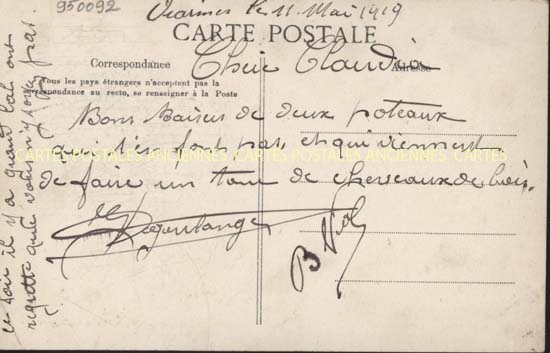 950092
Viarmes le 11 Mai 1919
CARTE POSTALE
Correspondance
Adresse
Tous les pays étrangers n'acceptent pas la
correspondance au recto, se renseigner à la Poste
Chère Claudia
Bons Baisers de deux poteaux
qui s'en font pas, et qui viennent
de faire un tour de chevaux de bois.
CARTES POSTALES ANCIENNES CARTES POSTALES ANCIENNES CARTES POSTALES ANCIENNES
B Viol
ce soir il y a quant bal on
regrette que vous n'y soyez pas.